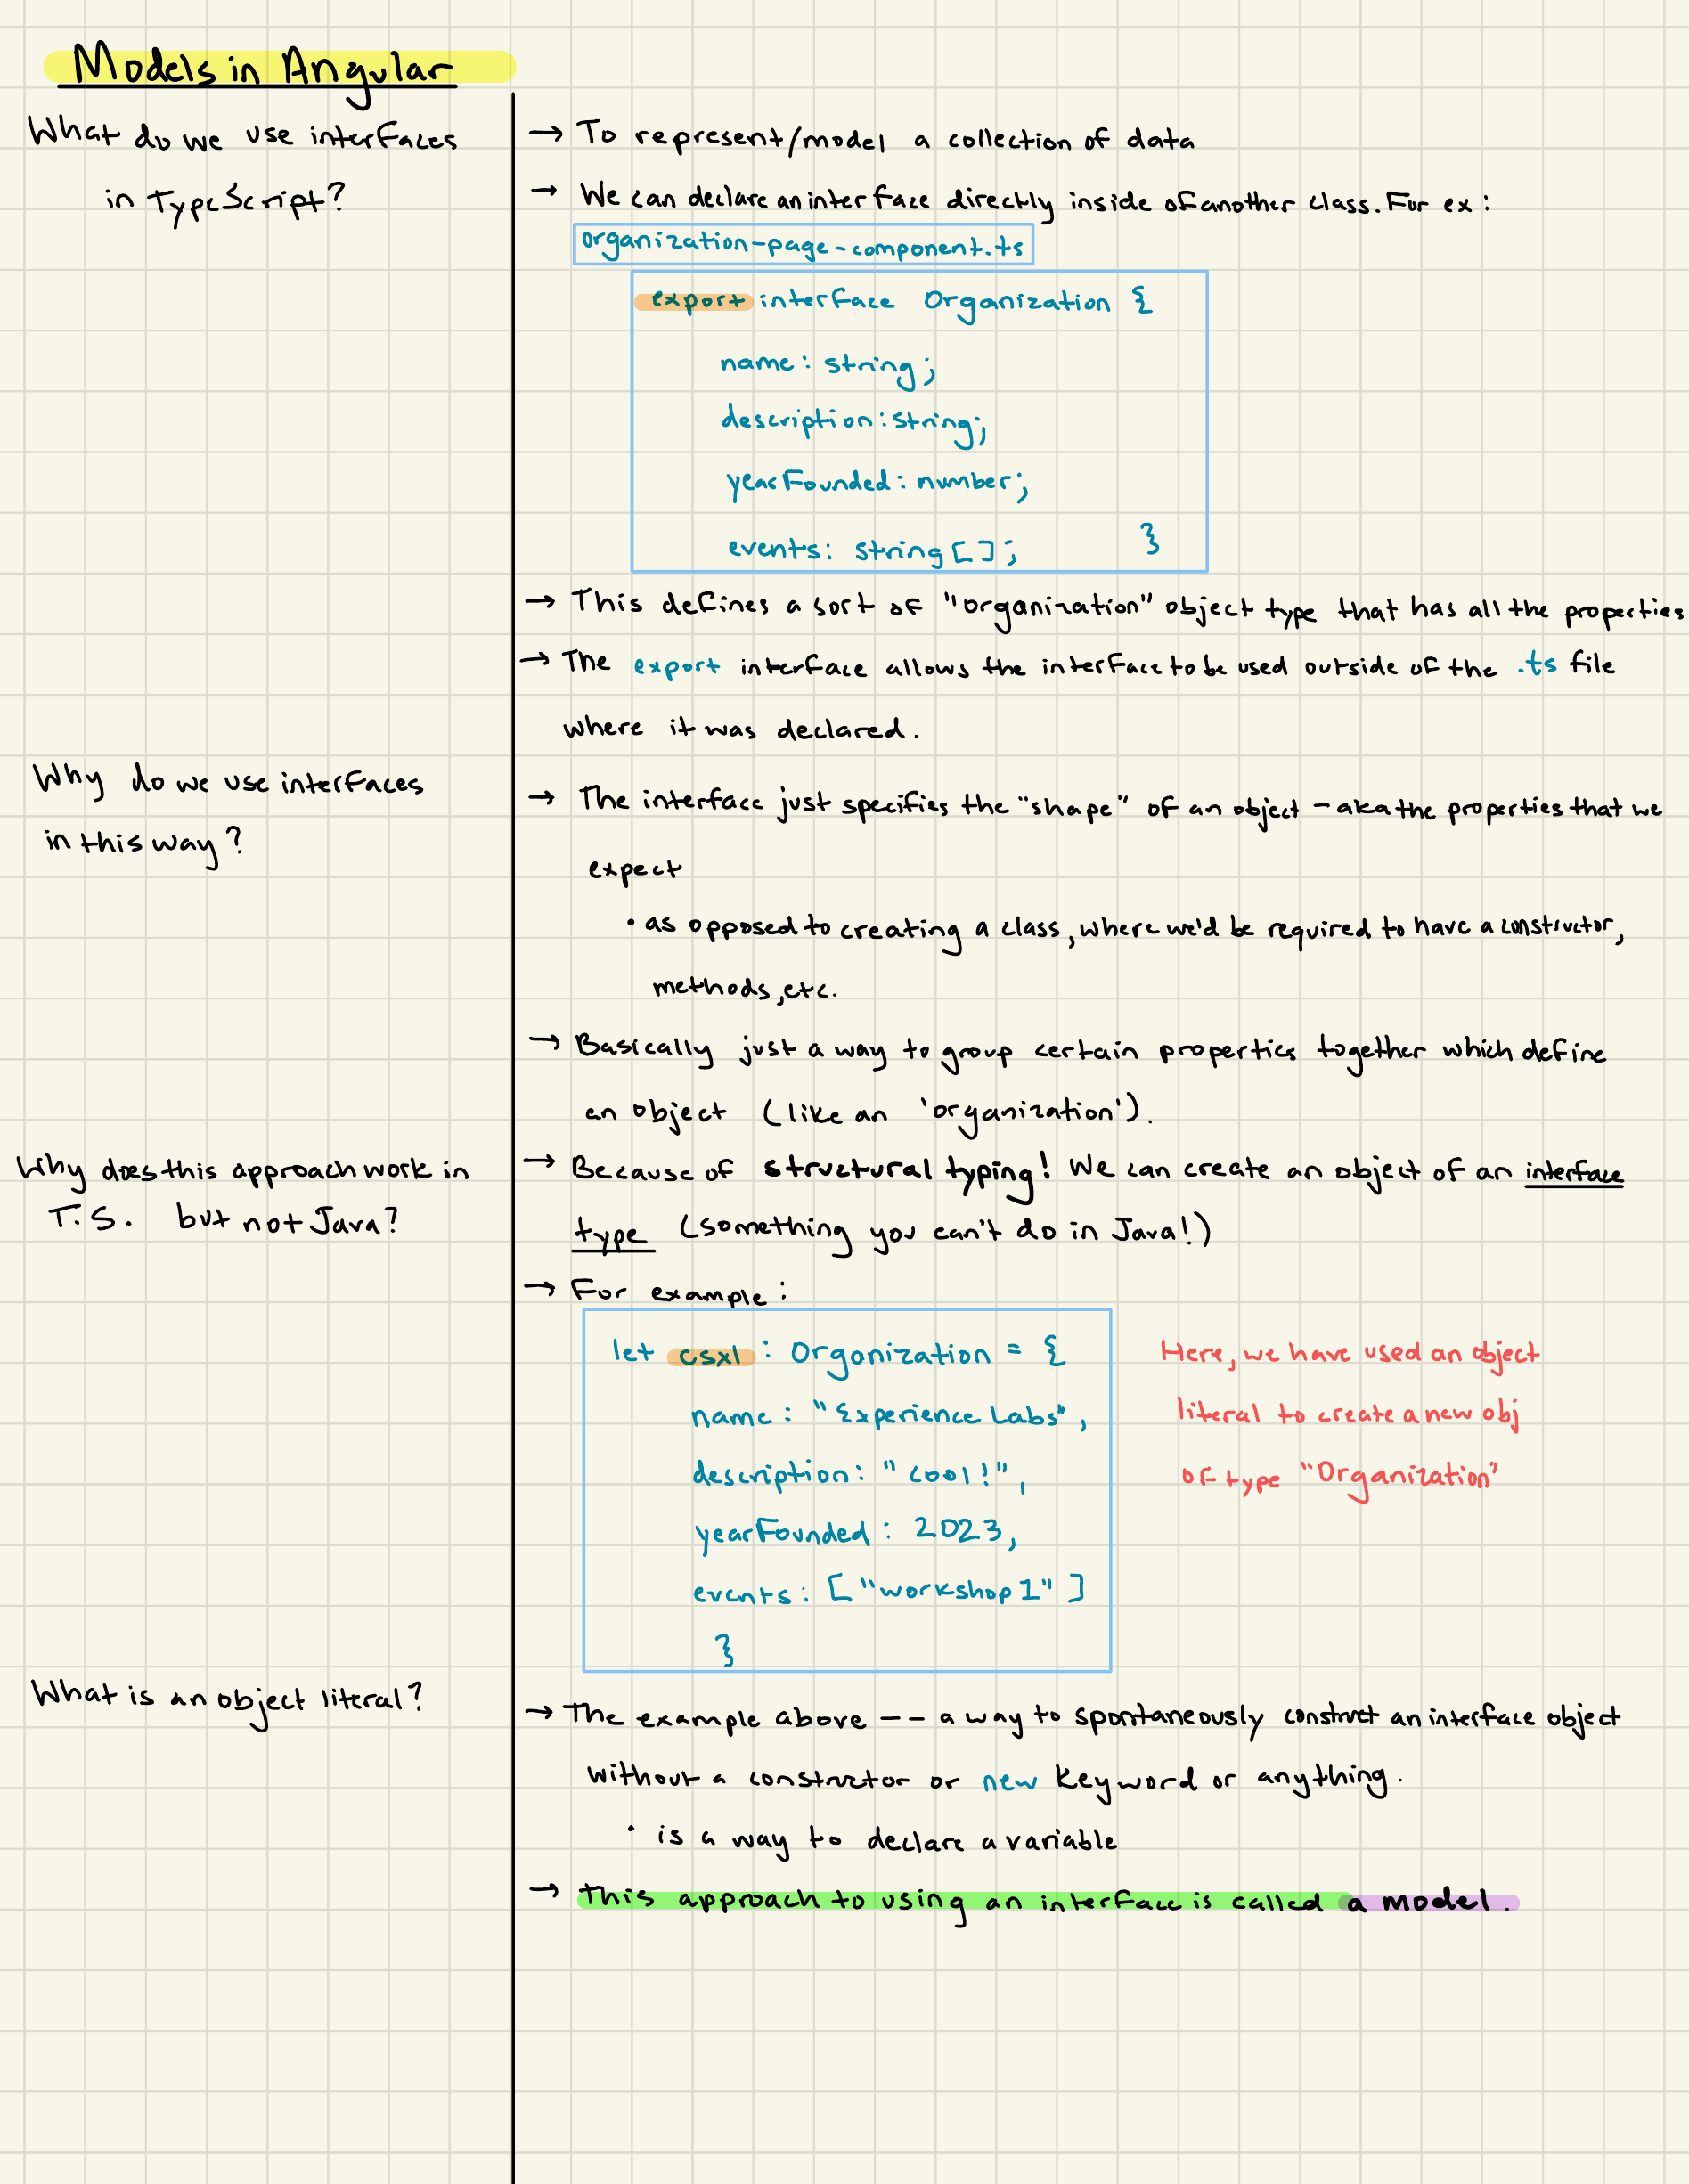 Models in Angular
What do we use interfaces
in TypeScript?
→ To represent/model a collection of data
→ We can declare an interface directly inside of another class. For ex:
organization-page-component.ts
export interface Organization {
name: string;
description: string;
yearFounded: number;
events: string[]; }
→ This defines a sort of "organization" object type that has all the properties
→ The export interface allows the interface to be used outside of the .ts file
where it was declared.
Why do we use interfaces
in this way?
→ The interface just specifies the "shape" of an object - aka the properties that we
expect
• as opposed to creating a class, where we'd be required to have a constructor,
methods, etc.
→ Basically just a way to group certain properties together which define
an object (like an 'organization').
Why does this approach work in
T.S. but not Java?
→ Because of structural typing! We can create an object of an interface
type (something you can't do in Java!)
→ For example:
let csxl: Organization = {
name: "Experience Labs",
description: "cool!",
yearFounded: 2023,
events: ["workshop 1"]
}
Here, we have used an object
literal to create a new obj
of type "Organization"
What is an object literal?
→ The example above -- a way to spontaneously construct an interface object
without a constructor or new keyword or anything.
• is a way to declare a variable
→ This approach to using an interface is called a model.